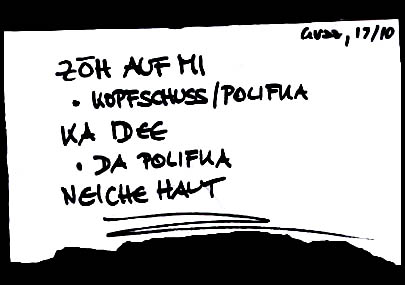 Graz, 17/10
ZÖH AUF MI
• KOPFSCHUSS/POLIFKA
KA IDEE
• DA POLIFKA
NEICHE HAUT